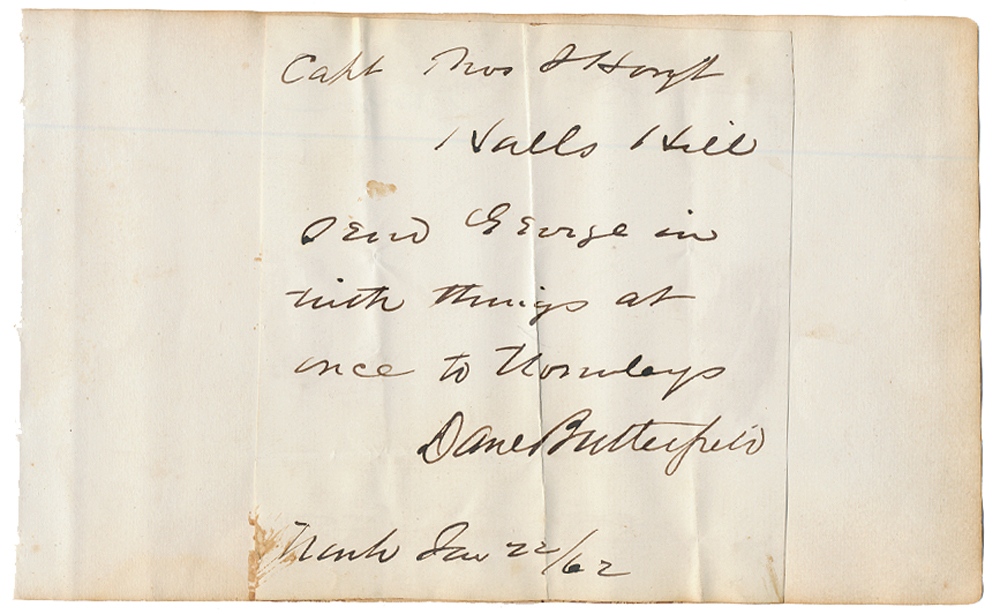 Capt Thos J Hoyt
Halls Hill
Send George in
with things at
once to
Danl Butterfield
Jan 22/62